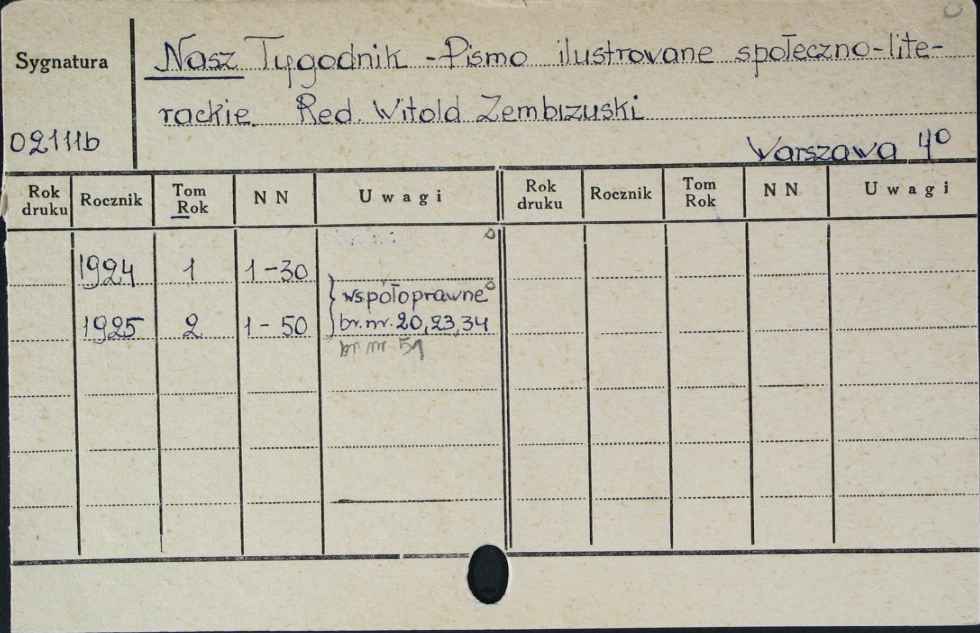 Sygnatura
Nasz Tygodnik - Pismo ilustrowane społeczno-lite-
rackie. Red. Witold Zembrzuski
02111b
Warszawa 4º
Rok druku Rocznik Tom Rok N N Uwagi Rok druku Rocznik Tom Rok N N Uwagi
1924 1 1-30
współoprawne
1925 2 1-50 br. nr. 20, 23, 34
br nr 51